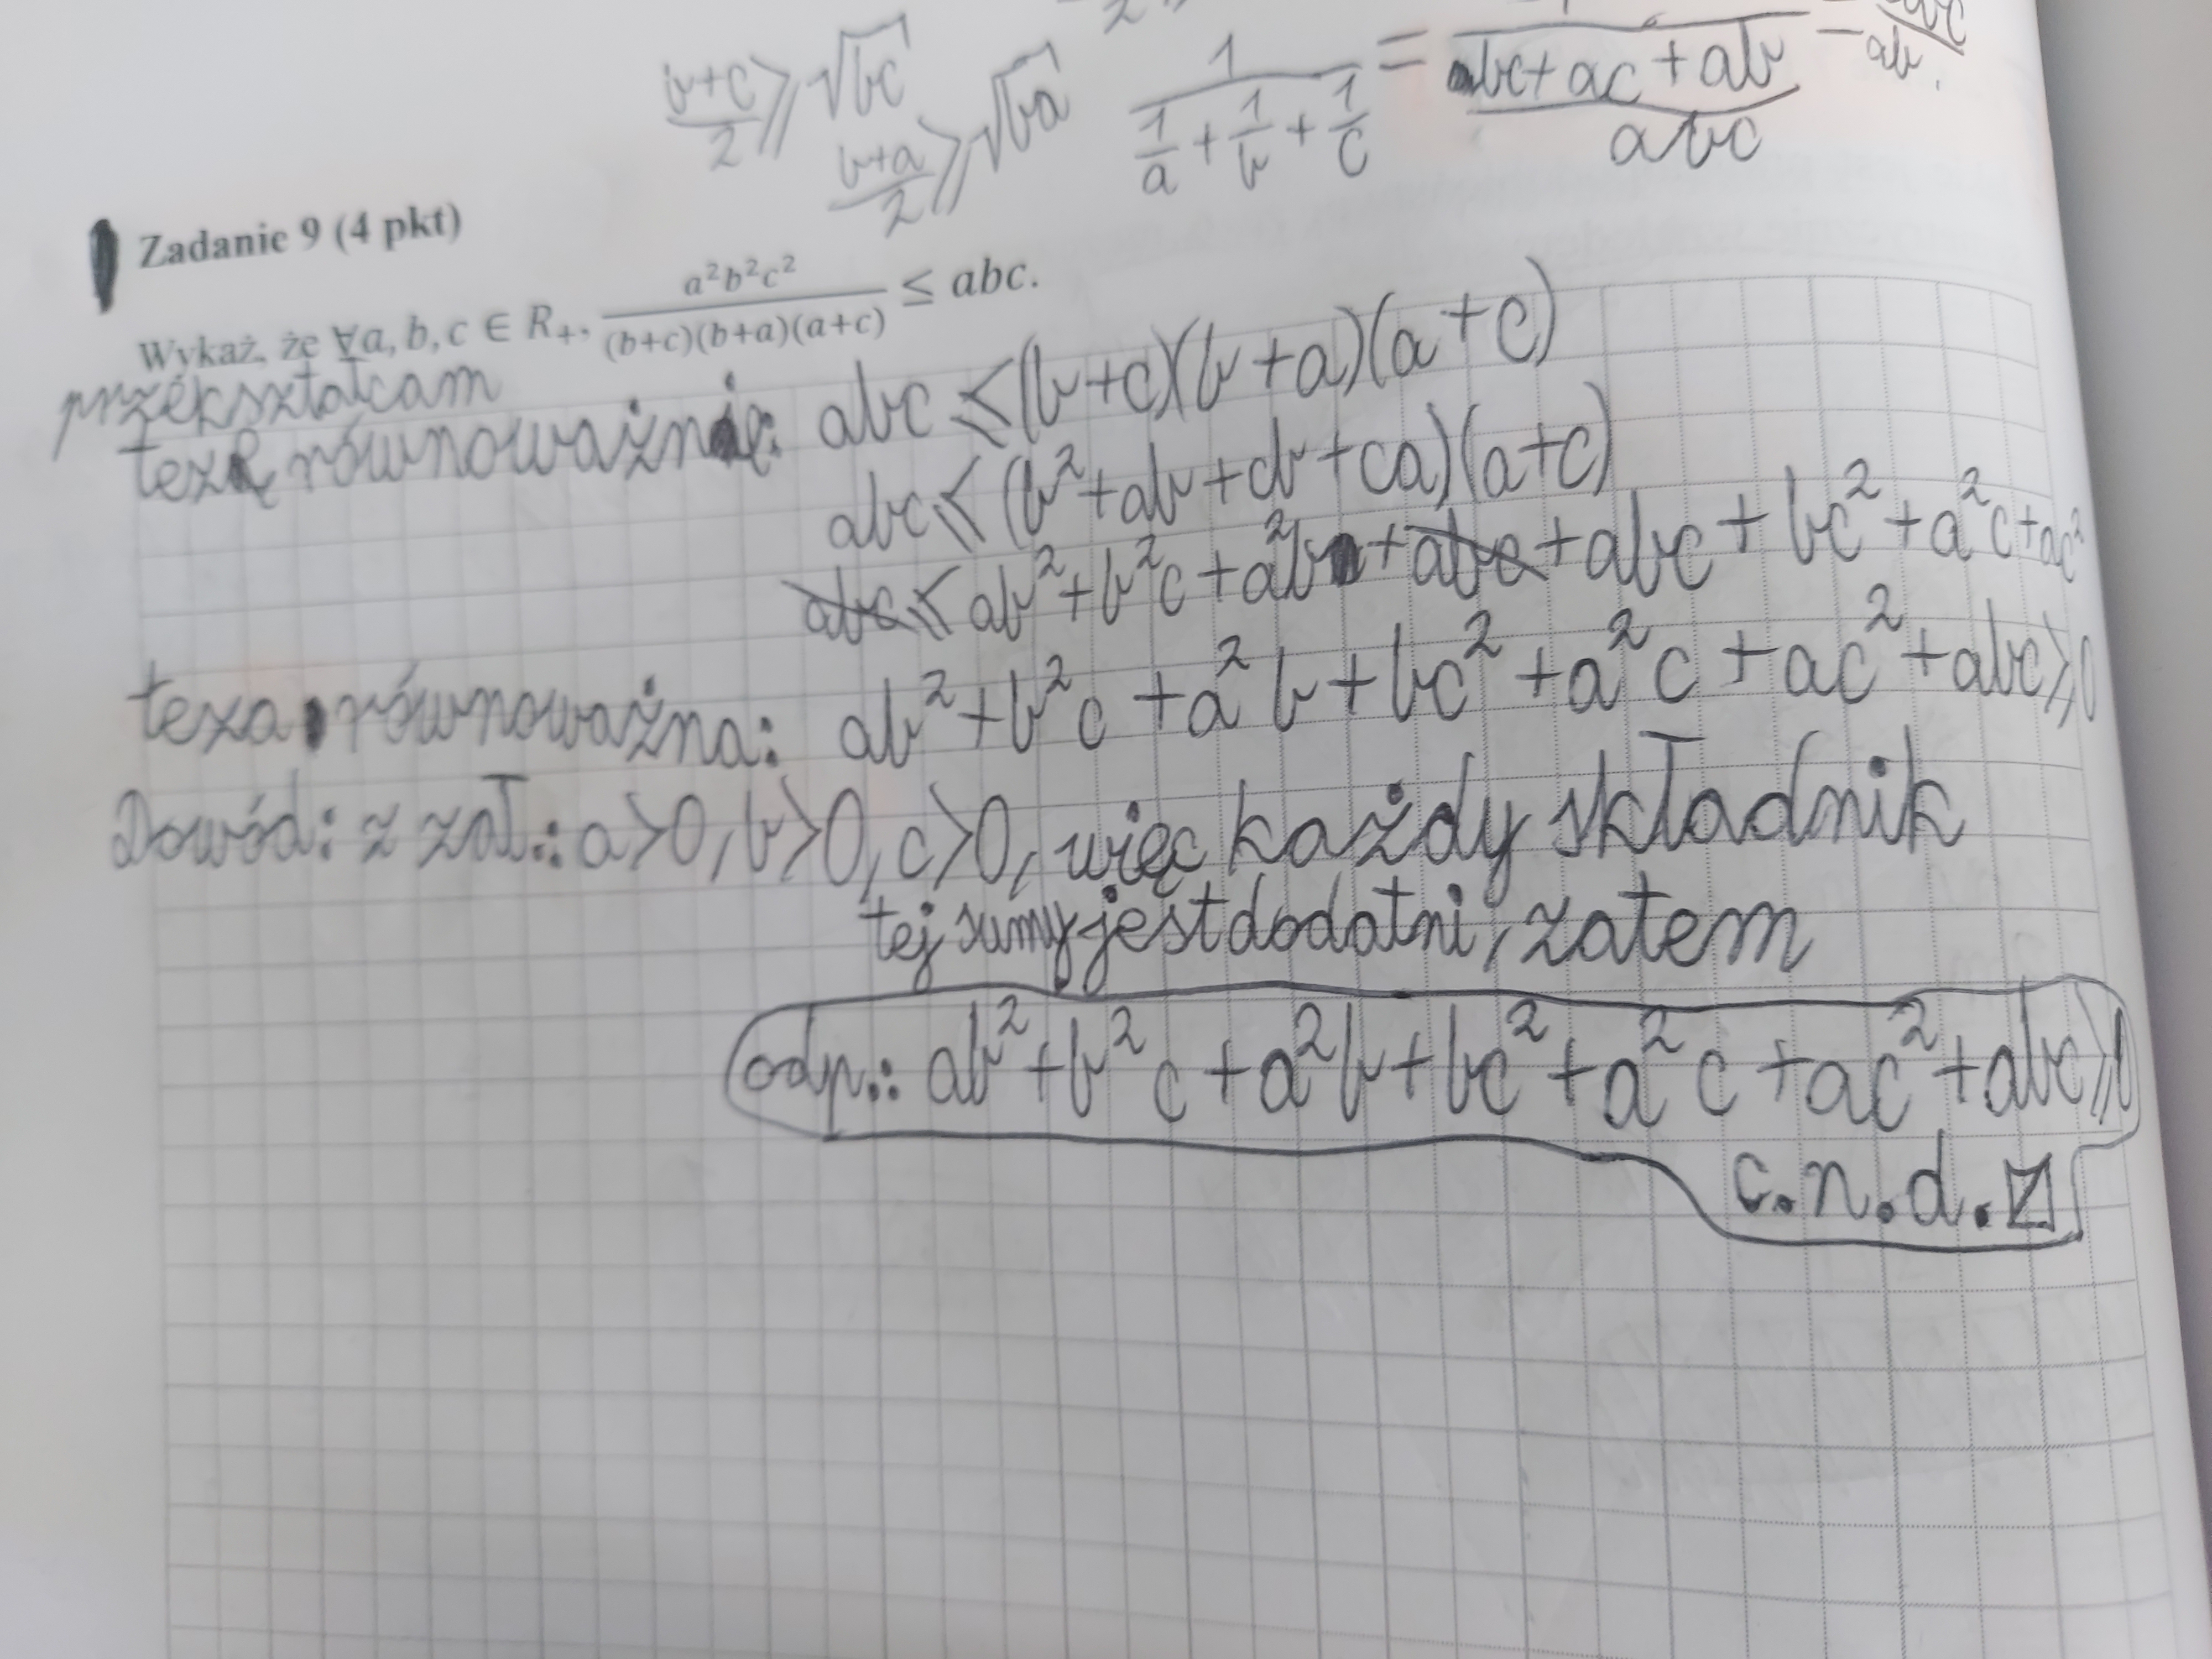 b+c/2 ⩾ √bc
b+a/2 ⩾ √ba
1/(1/a + 1/b + 1/c) = /(bc+ac+ab/abc) =
Zadanie 9 (4 pkt)
Wykaż, że ∀a, b, c ∈ R₊, a²b²c²/(b+c)(b+a)(a+c) ≤ abc.
przekształcam
tezę równoważnie: abc ⩽ (b+c)(b+a)(a+c)
abc ⩽ (b²+ab+cb+ca)(a+c)
abc ⩽ ab²+b²c+a²b+abc+abc+bc²+a²c+ac²
teza równoważna: ab²+b²c+a²b+bc²+a²c+ac²+abc⩾0
Dowód: z zał.: a>0, b>0, c>0, więc każdy składnik
tej sumy jest dodatni, zatem
odp.: ab²+b²c+a²b+bc²+a²c+ac²+abc⩾0
c.n.d.